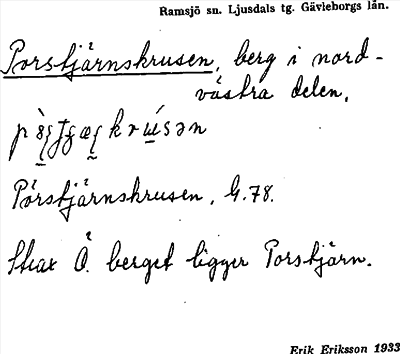 Ramsjö sn. Ljusdals tg. Gävleborgs län.
Porstjärnskrusen, berg i nord-
västra delen.
Pórstjärnskrusen, G.78.
Strax Ö. berget ligger Porstjärn.
Erik Eriksson 1933